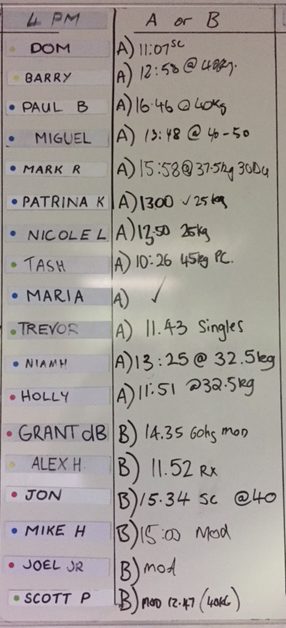 4 PM A or B
DOM A) 11:07 SC
BARRY A) 12:58 @ 40kg.
PAUL B A) 16.46 @ 40kg
MIGUEL A) 13:48 @ 40-50
MARK R A) 15:58 @ 37.5kg 30Du
PATRINA K A) 1300 ✓ 25kg
NICOLE L A) 12.50 25kg
TASH A) 10:26 45kg PC.
MARIA A) ✓
TREVOR A) 11.43 Singles
NIAMH A) 13:25 @ 32.5kg
HOLLY A) 11:51 @32.5kg
GRANT dB B) 14.35 60kg mod
ALEX H B) 11.52 Rx
JON B) 15.34 SC @40
MIKE H B) 15:00 Mod
JOEL JR B) mod
SCOTT P B) MOD 12.47 (40KG)